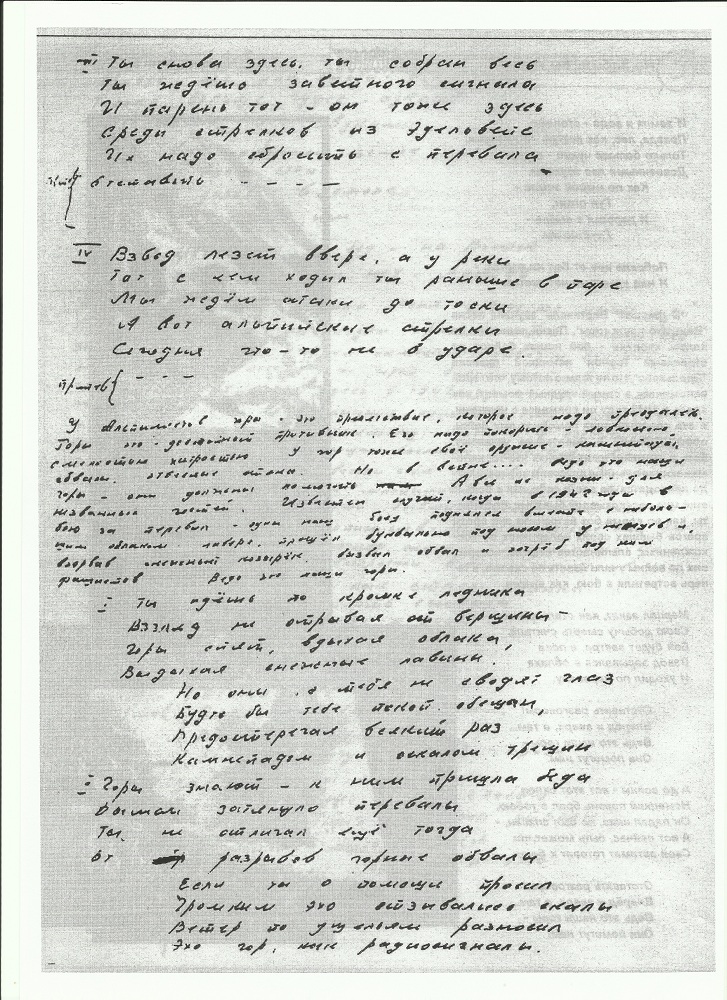 III Ты снова здесь, ты собран весь
Ты ждёшь заветного сигнала
И парень тот - он тоже здесь
Среди стрелков из Эдельвейс
Их надо сбросить с перевала
Отставить - - - -
IV Взвод лезет вверх, а у реки
Тот с кем ходил ты раньше в паре
Мы ждём атаки до тоски
А вот альпийские стрелки
Сегодня что-то не в ударе.
припев - - -
У альпинистов горы - это препятствие, которое надо преодолеть.
Горы это - противник. Его надо покорить - ловкостью
смелостью хитростью у гор тоже своё оружие - камнепад,
обвалы, отвесные стены. Но в войне.... Ведь это наши
горы - они должны помогать А все не жизни - для
незванных гостей. Известен случай, когда в 1942 году в
бою за перевал - один наш боец поднялся вместе с
облаком наверх, прошёл буквально под носом у немцев и,
взорвав снежный козырёк вызвал обвал и погрёб под ним
фашистов Ведь это наши горы.
I Ты идёшь по кромке ледника
Взгляд не отрывая от вершины -
Горы спят, вдыхая облака,
Выдыхая снежные лавины.
Но они с тебя не сводят глаз
Будто бы тебе покой обещан,
Предостерегая всякий раз
Камнепадом и оскалом трещин
Горы знают - к ним пришла беда
Дымом затянуло перевалы
Ты не отличал ещё тогда
От разрывов горные обвалы
Если ты о помощи просил
Громким эхо отзывались скалы
Ветер по ущельям разносил
Эхо гор, как радиосигналы.